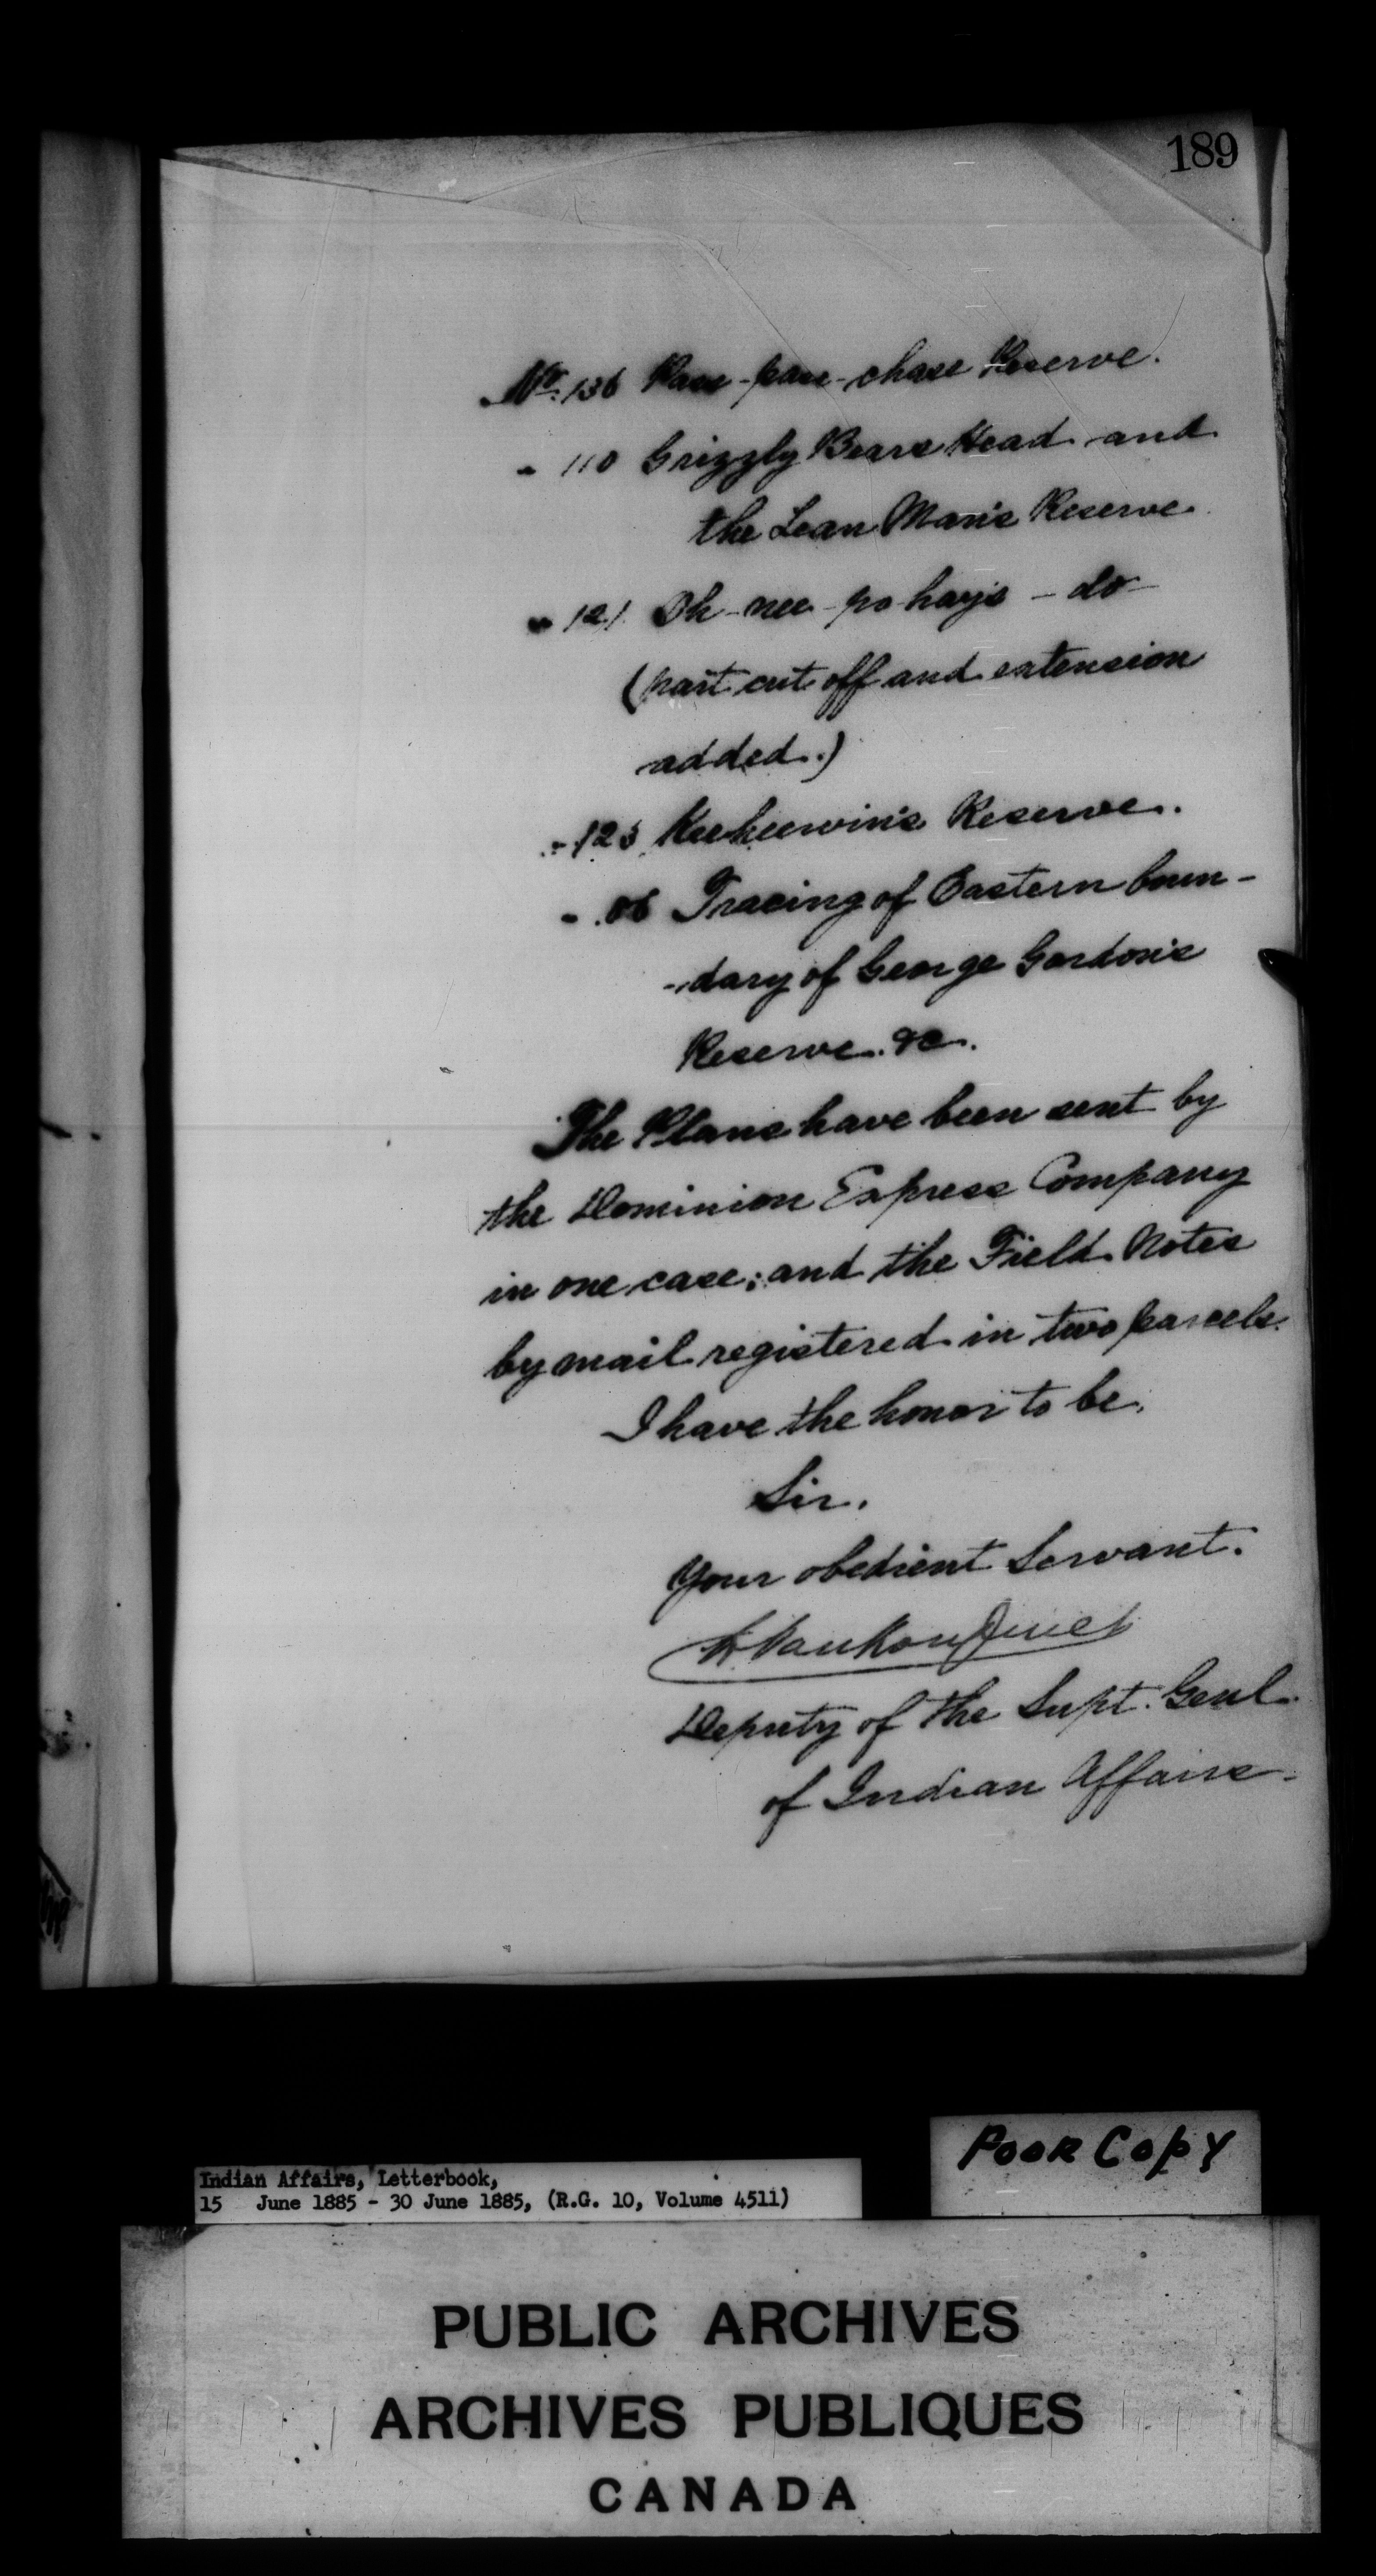 189
No. 136 Pass-pass-chase Reserve.
" 110 Grizzly Bears Head and
the Lean Man's Reserve
" 121 Oh-nee-pa-hay's - do -
(part cut off and extension
added.)
" 123 Keeheewin's Reserve.
" 86 Tracing of Eastern boun-
-dary of George Gordon's
Reserve. &c.
The Plans have been sent by
the Dominion Express Company
in one case; and the Field Notes
by mail registered in two parcels.
I have the honor to be,
Sir,
Your obedient Servant.
L. VanKoughnet
Deputy of the Supt. Genl.
of Indian Affairs.
Poor Copy
Indian Affairs, Letterbook,
15 June 1885 - 30 June 1885, (R.G. 10, Volume 4511)
PUBLIC ARCHIVES
ARCHIVES PUBLIQUES
CANADA